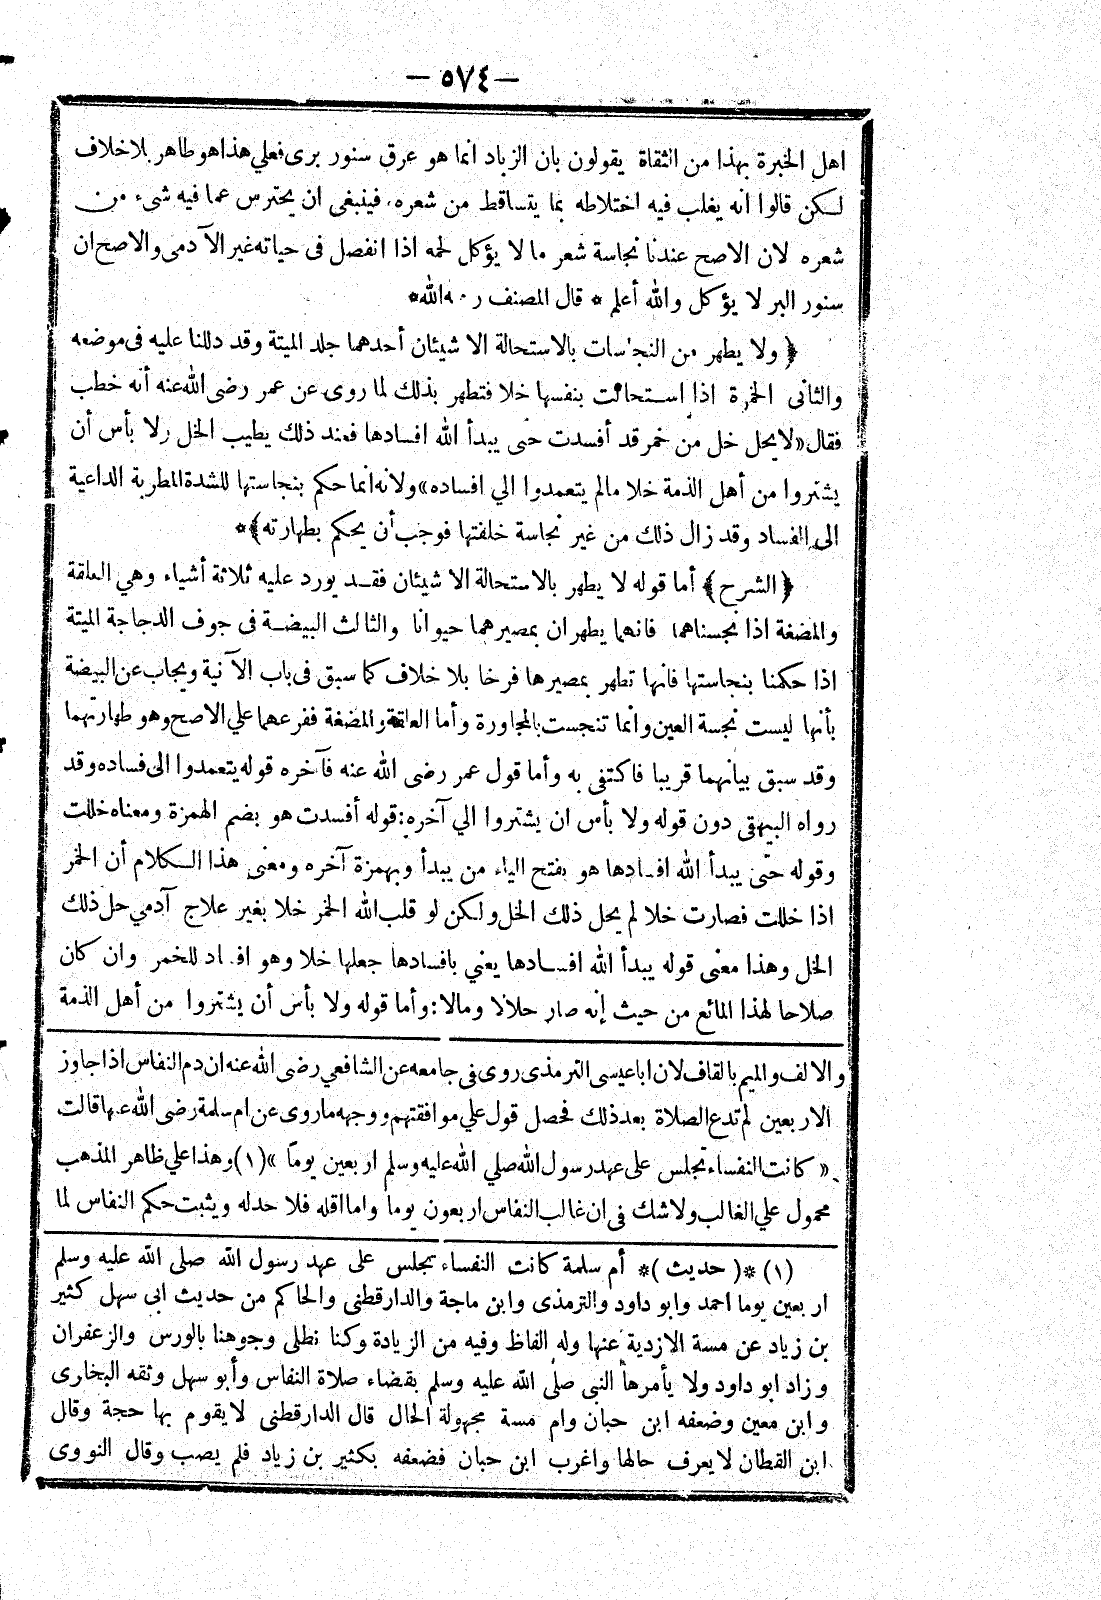 — ٥٧٤ —
اهل الخبرة بهذا من الثقاة يقولون بان الزباد انما هو عرق سنور برى فعلي هذا هو طاهر بلا خلاف
لكن قالوا انه يغلب فيه اختلاطه بما يتساقط من شعره فينبغى ان يحترس عما فيه شىء من
شعره لان الاصح عندنا نجاسة شعر ما لا يؤكل لحمه اذا انفصل فى حياته غير الآدمى والاصح ان
سنور البر لا يؤكل والله أعلم * قال المصنف رحمه الله *
﴿ ولا يطهر من النجاسات بالاستحالة الا شيئان أحدهما جلد الميتة وقد دللنا عليه فى موضعه
والثانى الخمرة اذا استحالت بنفسها خلا فتطهر بذلك لما روى عن عمر رضى الله عنه أنه خطب
فقال «لا يحل خل من خمر قد أفسدت حتى يبدأ الله افسادها فعند ذلك يطيب الخل ولا بأس أن
يشتروا من أهل الذمة خلا مالم يتعمدوا الي افساده» ولانه انما حكم بنجاستها للشدة المطربة الداعية
الى الفساد وقد زال ذلك من غير نجاسة خلفتها فوجب أن يحكم بطهارته ﴾*
﴿ الشرح ﴾ أما قوله لا يطهر بالاستحالة الا شيئان فقد يورد عليه ثلاثة أشياء وهي العلقة
والمضغة اذا نجسناهما فانهما يطهران بمصيرهما حيوانا والثالث البيضة فى جوف الدجاجة الميتة
اذا حكمنا بنجاستها فانها تطهر بمصيرها فرخا بلا خلاف كما سبق فى باب الآنية ويجاب عن البيضة
بأنها ليست نجسة العين وانما تنجست بالمجاورة وأما العلقة والمضغة ففرعهما علي الاصح وهو طهارتهما
وقد سبق بيانهما قريبا فاكتفى به وأما قول عمر رضى الله عنه فآخره قوله يتعمدوا الى فساده وقد
رواه البيهقى دون قوله ولا بأس ان يشتروا الي آخره: قوله أفسدت هو بضم الهمزة ومعناه خللت
وقوله حتى يبدأ الله افسادها هو بفتح الياء من يبدأ وبهمزة آخره ومعنى هذا الكلام أن الخمر
اذا خللت فصارت خلا لم يحل ذلك الخل ولكن لو قلب الله الخمر خلا بغير علاج آدمي حل ذلك
الخل وهذا معنى قوله يبدأ الله افسادها يعني بافسادها جعلها خلا وهو افساد للخمر وان كان
صلاحا لهذا المائع من حيث إنه صار حلالا ومالا: وأما قوله ولا بأس أن يشتروا من أهل الذمة
والالف والميم بالقاف لان ابا عيسى الترمذى روى فى جامعه عن الشافعي رضى الله عنه ان دم النفاس اذا جاوز
الاربعين لم تدع الصلاة بعد ذلك فحصل قول علي موافقتهم ووجهه ما روى عن ام سلمة رضى الله عنها قالت
« كانت النفساء تجلس على عهد رسول الله صلي الله عليه وسلم اربعين يومًا » (١) وهذا علي ظاهر المذهب
محمول علي الغالب ولا شك فى ان غالب النفاس اربعون يوما واما اقله فلا حد له ويثبت حكم النفاس لما
(١) *( حديث )* أم سلمة كانت النفساء تجلس على عهد رسول الله صلى الله عليه وسلم
اربعين يوما احمد وابو داود والترمذى وابن ماجة والدارقطنى والحاكم من حديث ابى سهل كثير
بن زياد عن مسة الازدية عنها وله الفاظ وفيه من الزيادة وكنا نطلى وجوهنا بالورس والزعفران
وزاد ابو داود ولا يأمرها النبى صلى الله عليه وسلم بقضاء صلاة النفاس وأبو سهل وثقه البخارى
وابن معين وضعفه ابن حبان وام مسة مجهولة الحال قال الدارقطنى لا يقوم بها حجة وقال
ابن القطان لا يعرف حالها واغرب ابن حبان فضعفه بكثير بن زياد فلم يصب وقال النووى